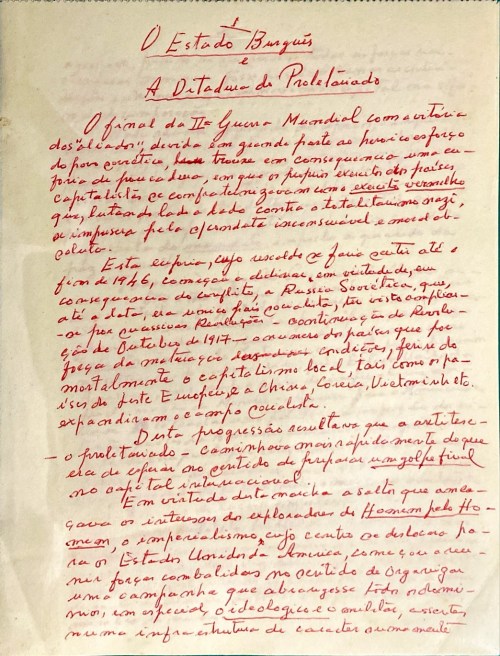 1
O Estado Burguês
e
A Ditadura do Proletariado
O final da IIª Guerra Mundial com a vitória
dos "aliados", devida em grande parte ao heroico esforço
do povo soviético, trouxe em consequencia uma eu-
foria de pouca dura, em que os proprios exercitos dos países
capitalistas se confraternizavam com o exército vermelho
que, lutando lado a lado contra o totalitarismo nazi,
se impusera pela conduta incensurável e moral ab-
soluta.
Esta euforia, cujo rescaldo se fazia sentir até o
fim de 1946, começou a declinar, em virtude de, em
consequencia do conflito, a Russia Soviética, que,
até a data, era unico país socialista, ter visto ampliar-
-se por sucessivas Revoluções - continuação da Revolu-
ção de Outubro de 1917 - o numero dos países que por
força da maturação condições, ferira
mortalmente o capitalismo local, tais como os pa-
íses do Leste Europeu, e a China, Coreia, Vietminh etc.
expandiram o campo socialista.
Desta progressão resultava que a antitese
- o proletariado - caminhava mais rapidamente do que
era de esperar no sentido de preparar um golpe final
no capital internacional
Em virtude desta marcha a saltos que amea-
çava os interesses dos exploradores do Homem pelo Ho-
mem, o imperialismo, cujo centro se deslocara pa-
ra os Estados Unidos da America, começou a reu-
nir forças combalidas no sentido de organizar
uma campanha que abrangesse todos os domi-
nios, em especial, o ideologico e o militar, assentes
numa infraestrutura de caracter sumamente